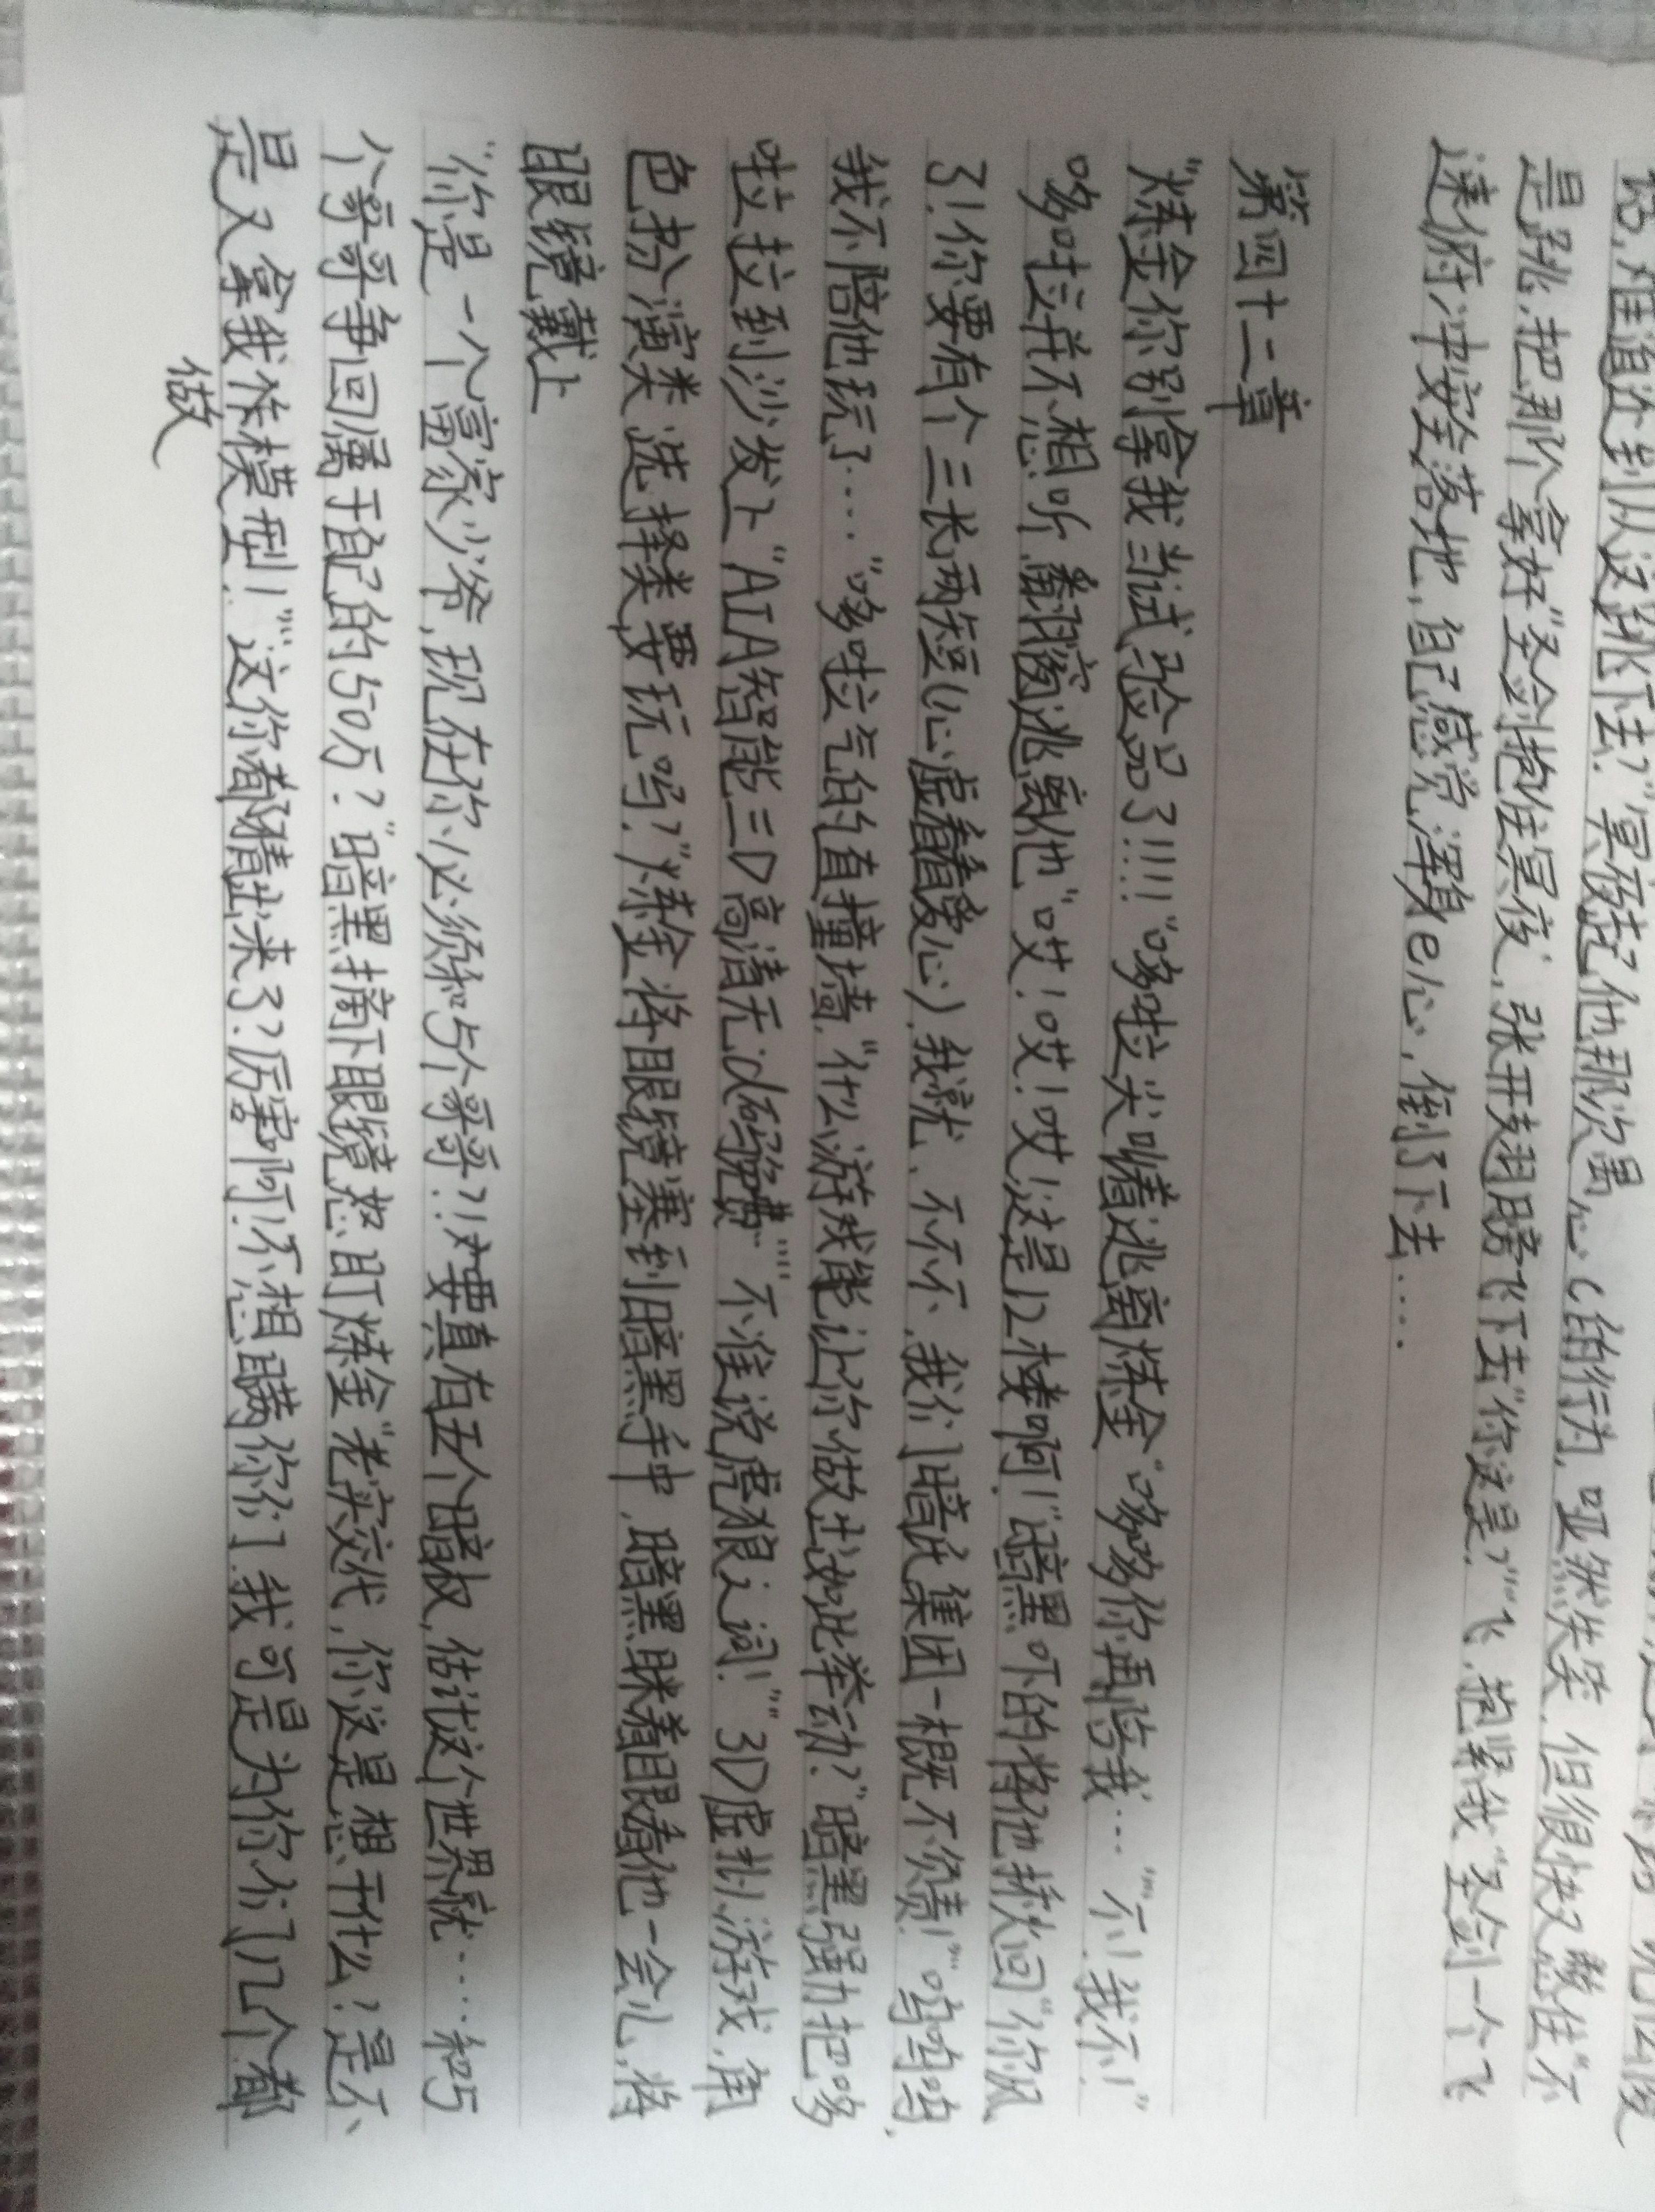 话,难道还到从这跳下去?"冥夜
是跳.把那个拿好"圣剑抱住冥夜,张开翅膀飞下去"你这是?""飞.抱紧我"圣剑一个飞
速俯冲安全落地,自己感觉浑身e心,倒了下去....
第四十二章
"炼金你别拿我当试验品了!!!!!"哆啦尖叫着逃离炼金"哆哆你再陪我...""不!我不!"
哆啦并不想听,翻窗逃离他"哎!哎!哎!这是12楼啊!"暗黑吓的将他揪回"你疯
了!你要有个三长两短(心虚着爱心),我就、不不不,我们暗氏集团一概不负责!""呜呜呜,
我不陪他玩了...."哆啦气的直撞墙."什么游戏能让你做出如此举动?"暗黑强力把哆
啦拉到沙发上"AIA智能三D高清无d码""不准说虎狼之词!""3D虚扑游戏,角
色扮演类.选择类,要玩吗?"炼金将眼镜塞到暗黑手中,暗黑眯着眼看他一会儿,将
眼镜戴上
"你是一个富家少爷,现在你必须和5个哥哥?!要真有五个暗权,估计这个世界就....和5
个哥哥争回属于自己的50万?"暗黑摘下眼镜怒盯炼金"老实交代,你这是想干什么?是不
是又拿我做模型!""这你都猜出来了?厉害啊!不想瞒你们.我可是为你们几个都